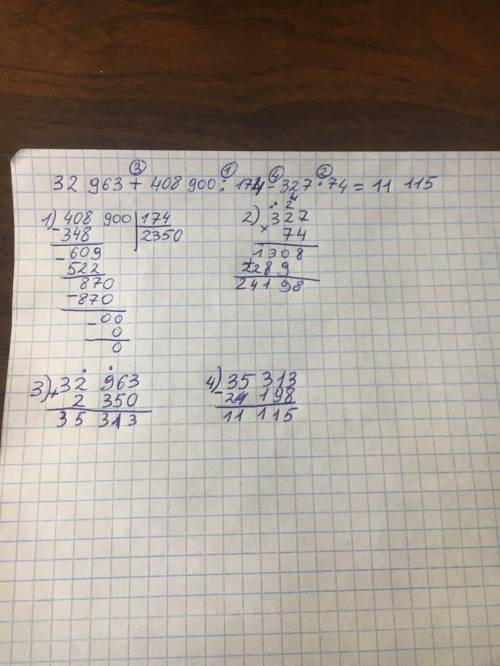 ③ ① ④ ②
32 963 + 408 900 : 174 - 327 · 74 = 11 115
1) 408 900 | 174
- 348 | 2350
- 609
522
870
- 870
- 00
0
0
2) 2
× 327
74
1308
2289
24198
3) + 32 963
2 350
35 313
4) - 35 313
24 198
11 115